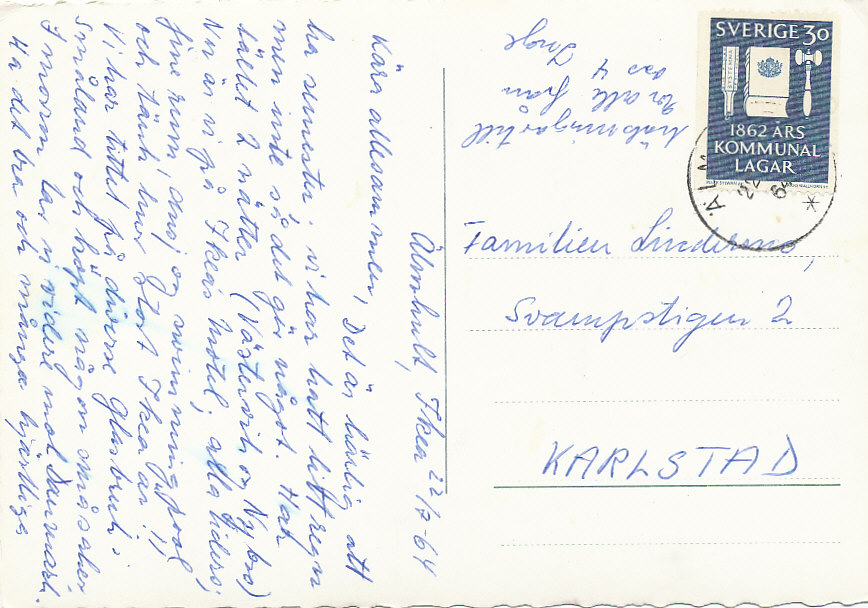 Älmhult, Ikea 22/7-64
Kära allesammen, Det är härlig att
ha semester. vi har hatt litt regn
men inte så det gör något. Har
tältet 2 nätter (Västervik o Nybro)
Nu är vi på Ikeas Motel; alla tiders;
fine rum, dusj og swimmingpool
och tänk hur stort Ikea är!!
Vi har tittet på diverse Glasbruk i
Småland och köpt någon småsaker
I morron far vi vidare mot Danmark.
Ha det bra och många hjärtliga
hälsningar till
Er alle från
oss 4
Inge
SVERIGE 30
SYSTEMNA
1862 ÅRS
KOMMUNAL
LAGAR
ÄLM
22
64
Familien Lindermo,
Svampstigen 2
KARLSTAD